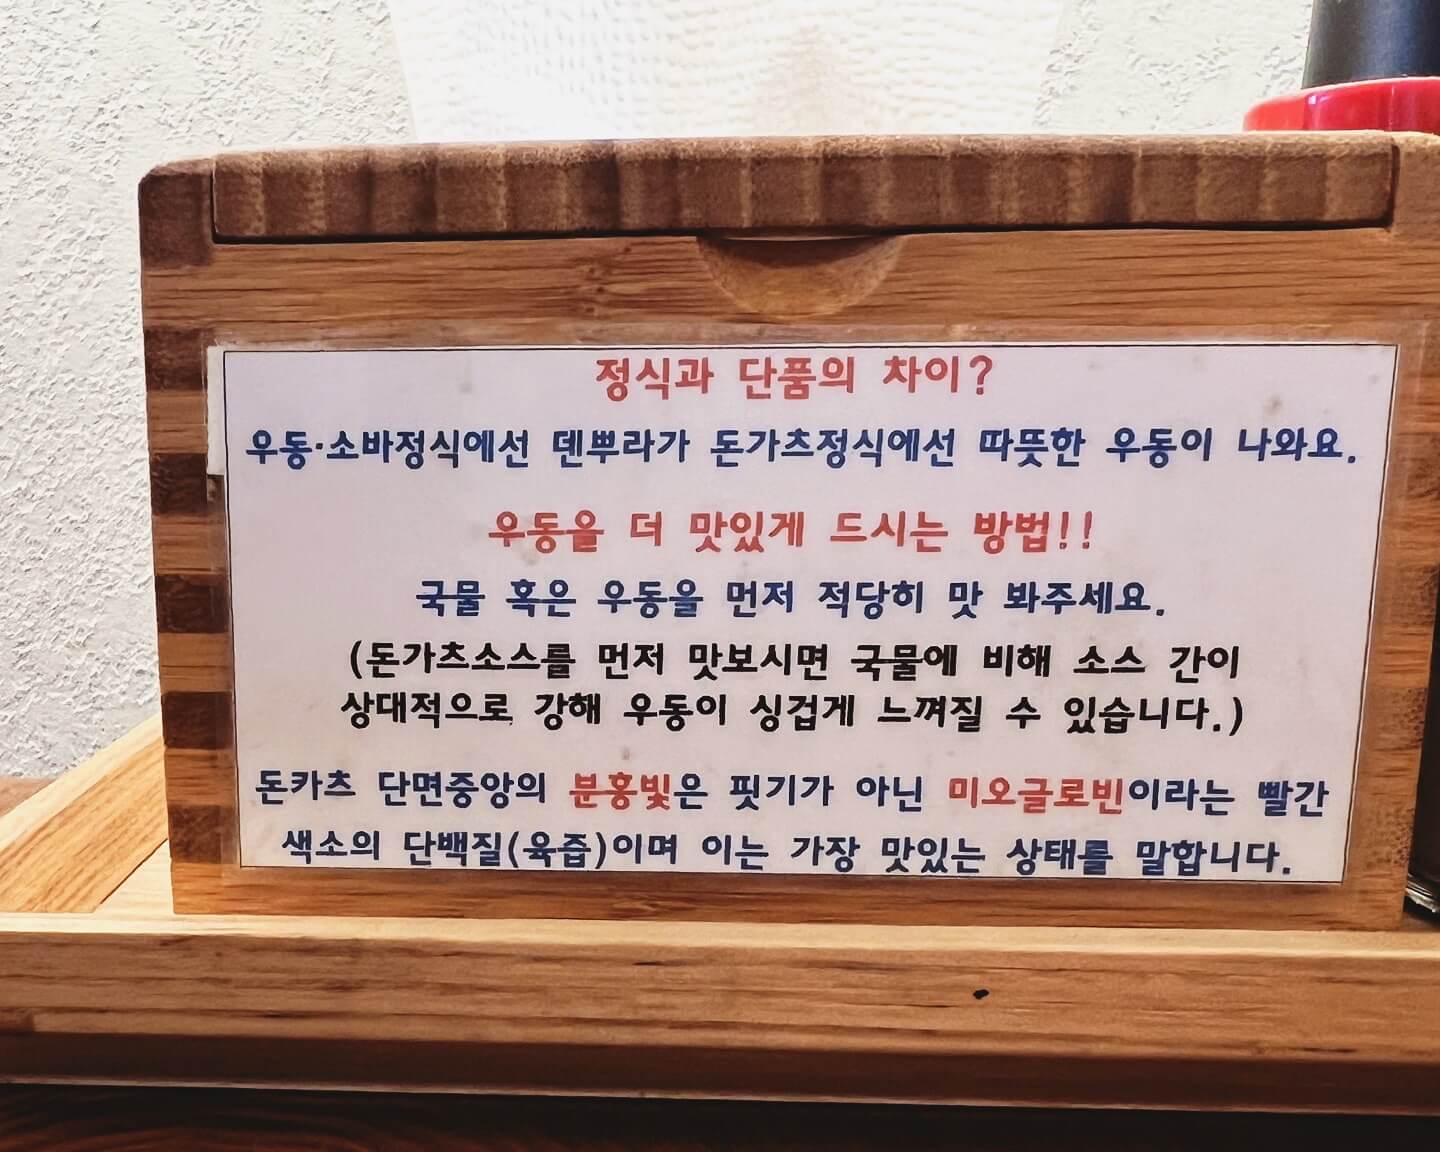 정식과 단품의 차이?
우동·소바정식에선 덴뿌라가 돈가츠정식에선 따뜻한 우동이 나와요.
우동을 더 맛있게 드시는 방법!!
국물 혹은 우동을 먼저 적당히 맛 봐주세요.
(돈가츠소스를 먼저 맛보시면 국물에 비해 소스 간이
상대적으로 강해 우동이 싱겁게 느껴질 수 있습니다.)
돈카츠 단면중앙의 분홍빛은 핏기가 아닌 미오글로빈이라는 빨간
색소의 단백질(육즙)이며 이는 가장 맛있는 상태를 말합니다.